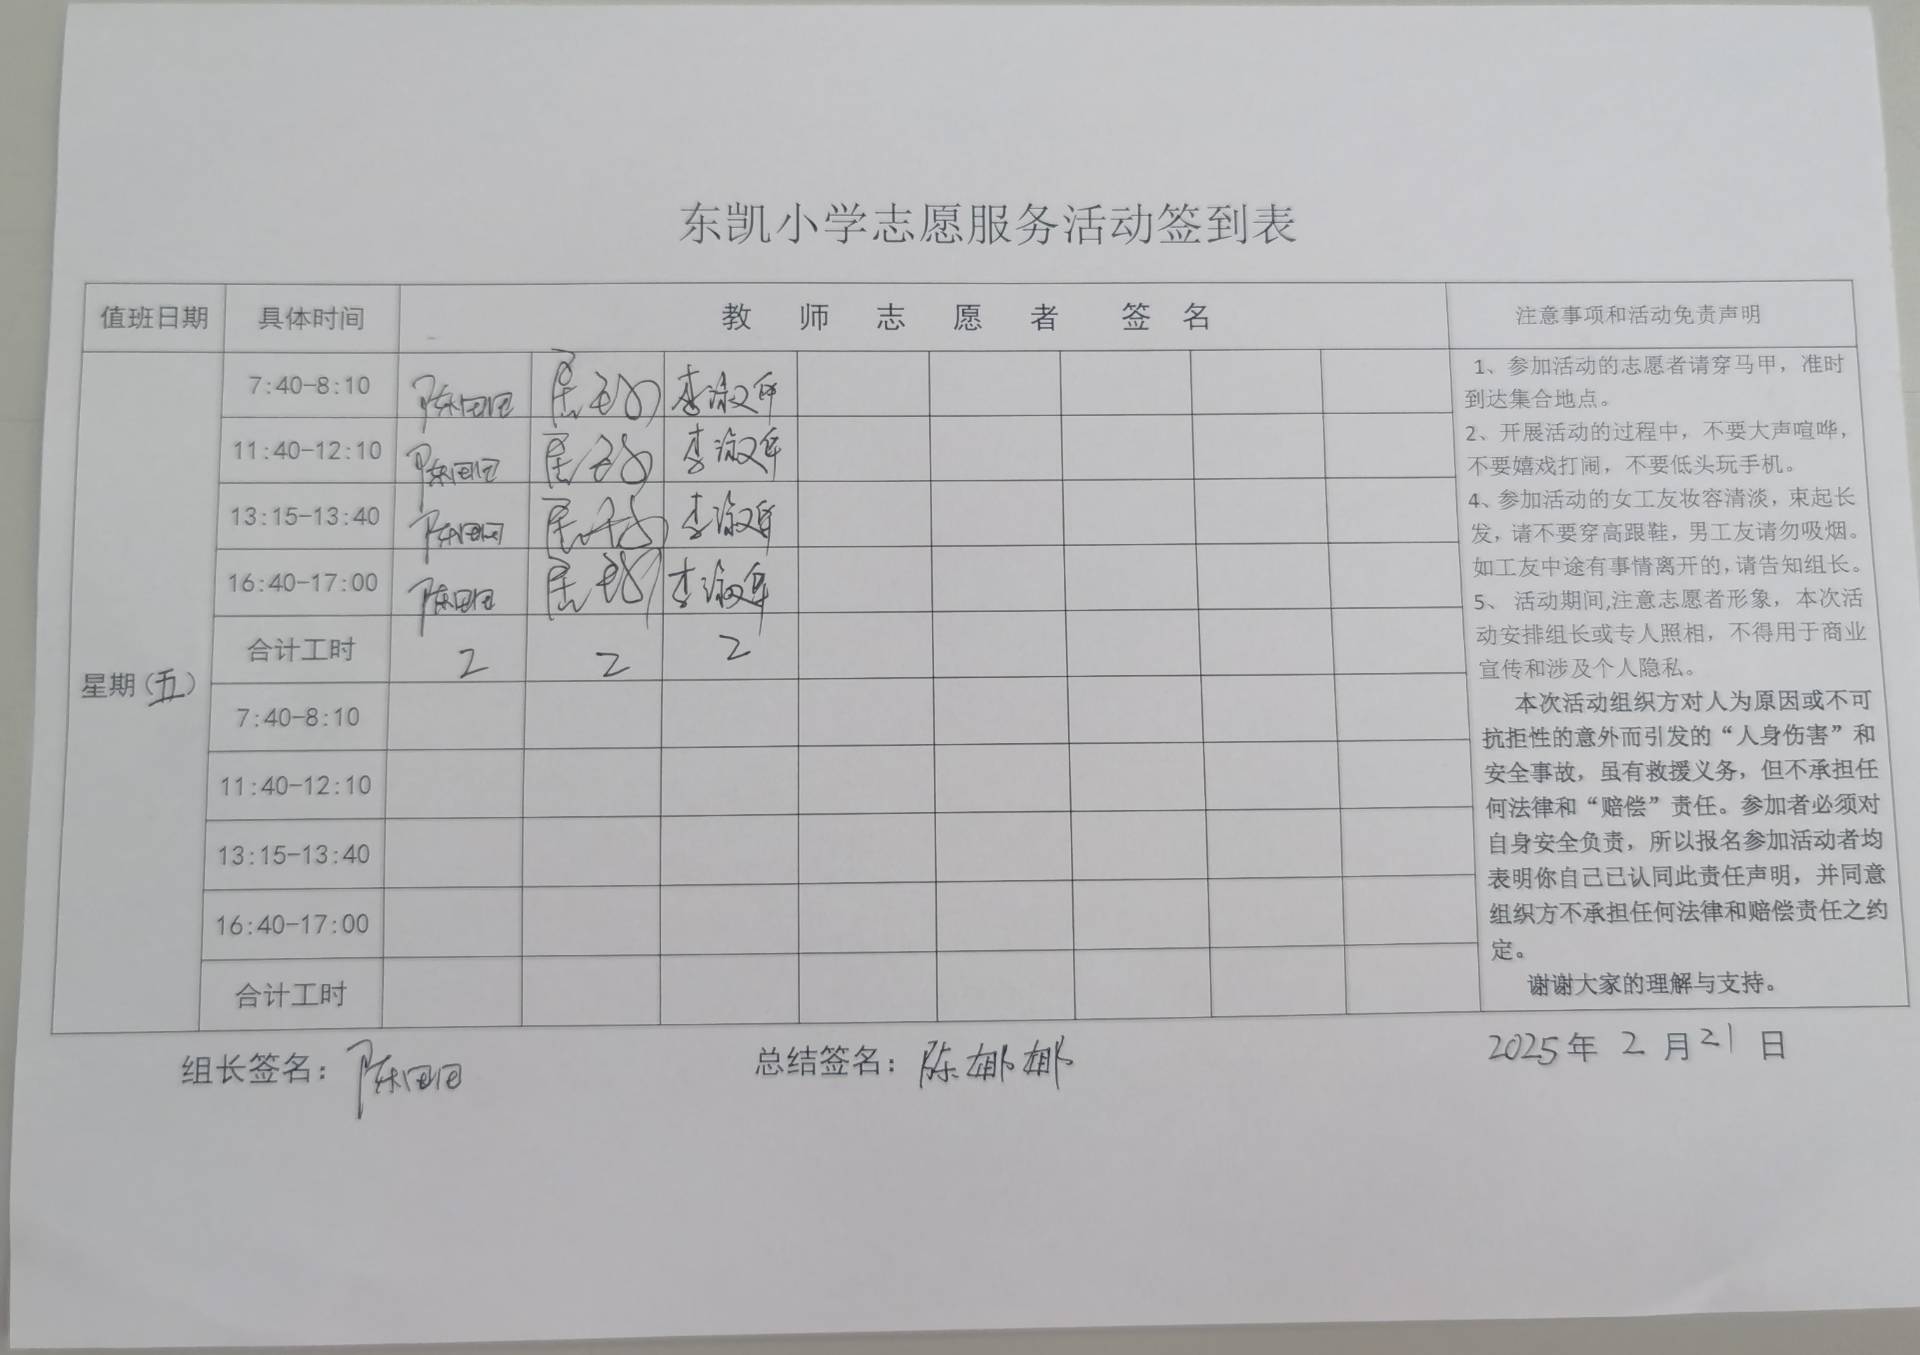 东凯小学志愿服务活动签到表
值班日期 具体时间 教师志愿者签名 注意事项和活动免责声明
星期(五)
7:40-8:10 陈团团
11:40-12:10 陈团团
13:15-13:40 陈团团
16:40-17:00 陈团团
合计工时 2 2 2
7:40-8:10
11:40-12:10
13:15-13:40
16:40-17:00
合计工时
1、参加活动的志愿者请穿马甲，准时
到达集合地点。
2、开展活动的过程中，不要大声喧哗，
不要嬉戏打闹，不要低头玩手机。
4、参加活动的女工友妆容清淡，束起长
发，请不要穿高跟鞋，男工友请勿吸烟。
如工友中途有事情离开的,请告知组长。
5、 活动期间,注意志愿者形象，本次活
动安排组长或专人照相，不得用于商业
宣传和涉及个人隐私。
本次活动组织方对人为原因或不可
抗拒性的意外而引发的“人身伤害”和
安全事故，虽有救援义务，但不承担任
何法律和“赔偿”责任。参加者必须对
自身安全负责，所以报名参加活动者均
表明你自己已认同此责任声明，并同意
组织方不承担任何法律和赔偿责任之约
定。
谢谢大家的理解与支持。
组长签名：陈团团 总结签名：陈郴郴 2025年 2 月 21 日